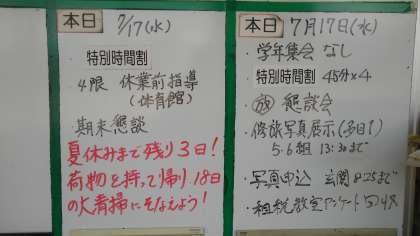 本日 7/17(水)
特別時間割
4限 休業前指導
(体育館)
期末懇談
夏休みまで残り3日!
荷物を持って帰り 18日
の大清掃にそなえよう!
本日 7月17日(水)
・学年集会 なし
特別時間割 45分×4
・放 懇談会
・修旅写真展示(3日目)
5.6組 13:30まで
・写真申込 玄関 8:25まで
・租税教室アンケート